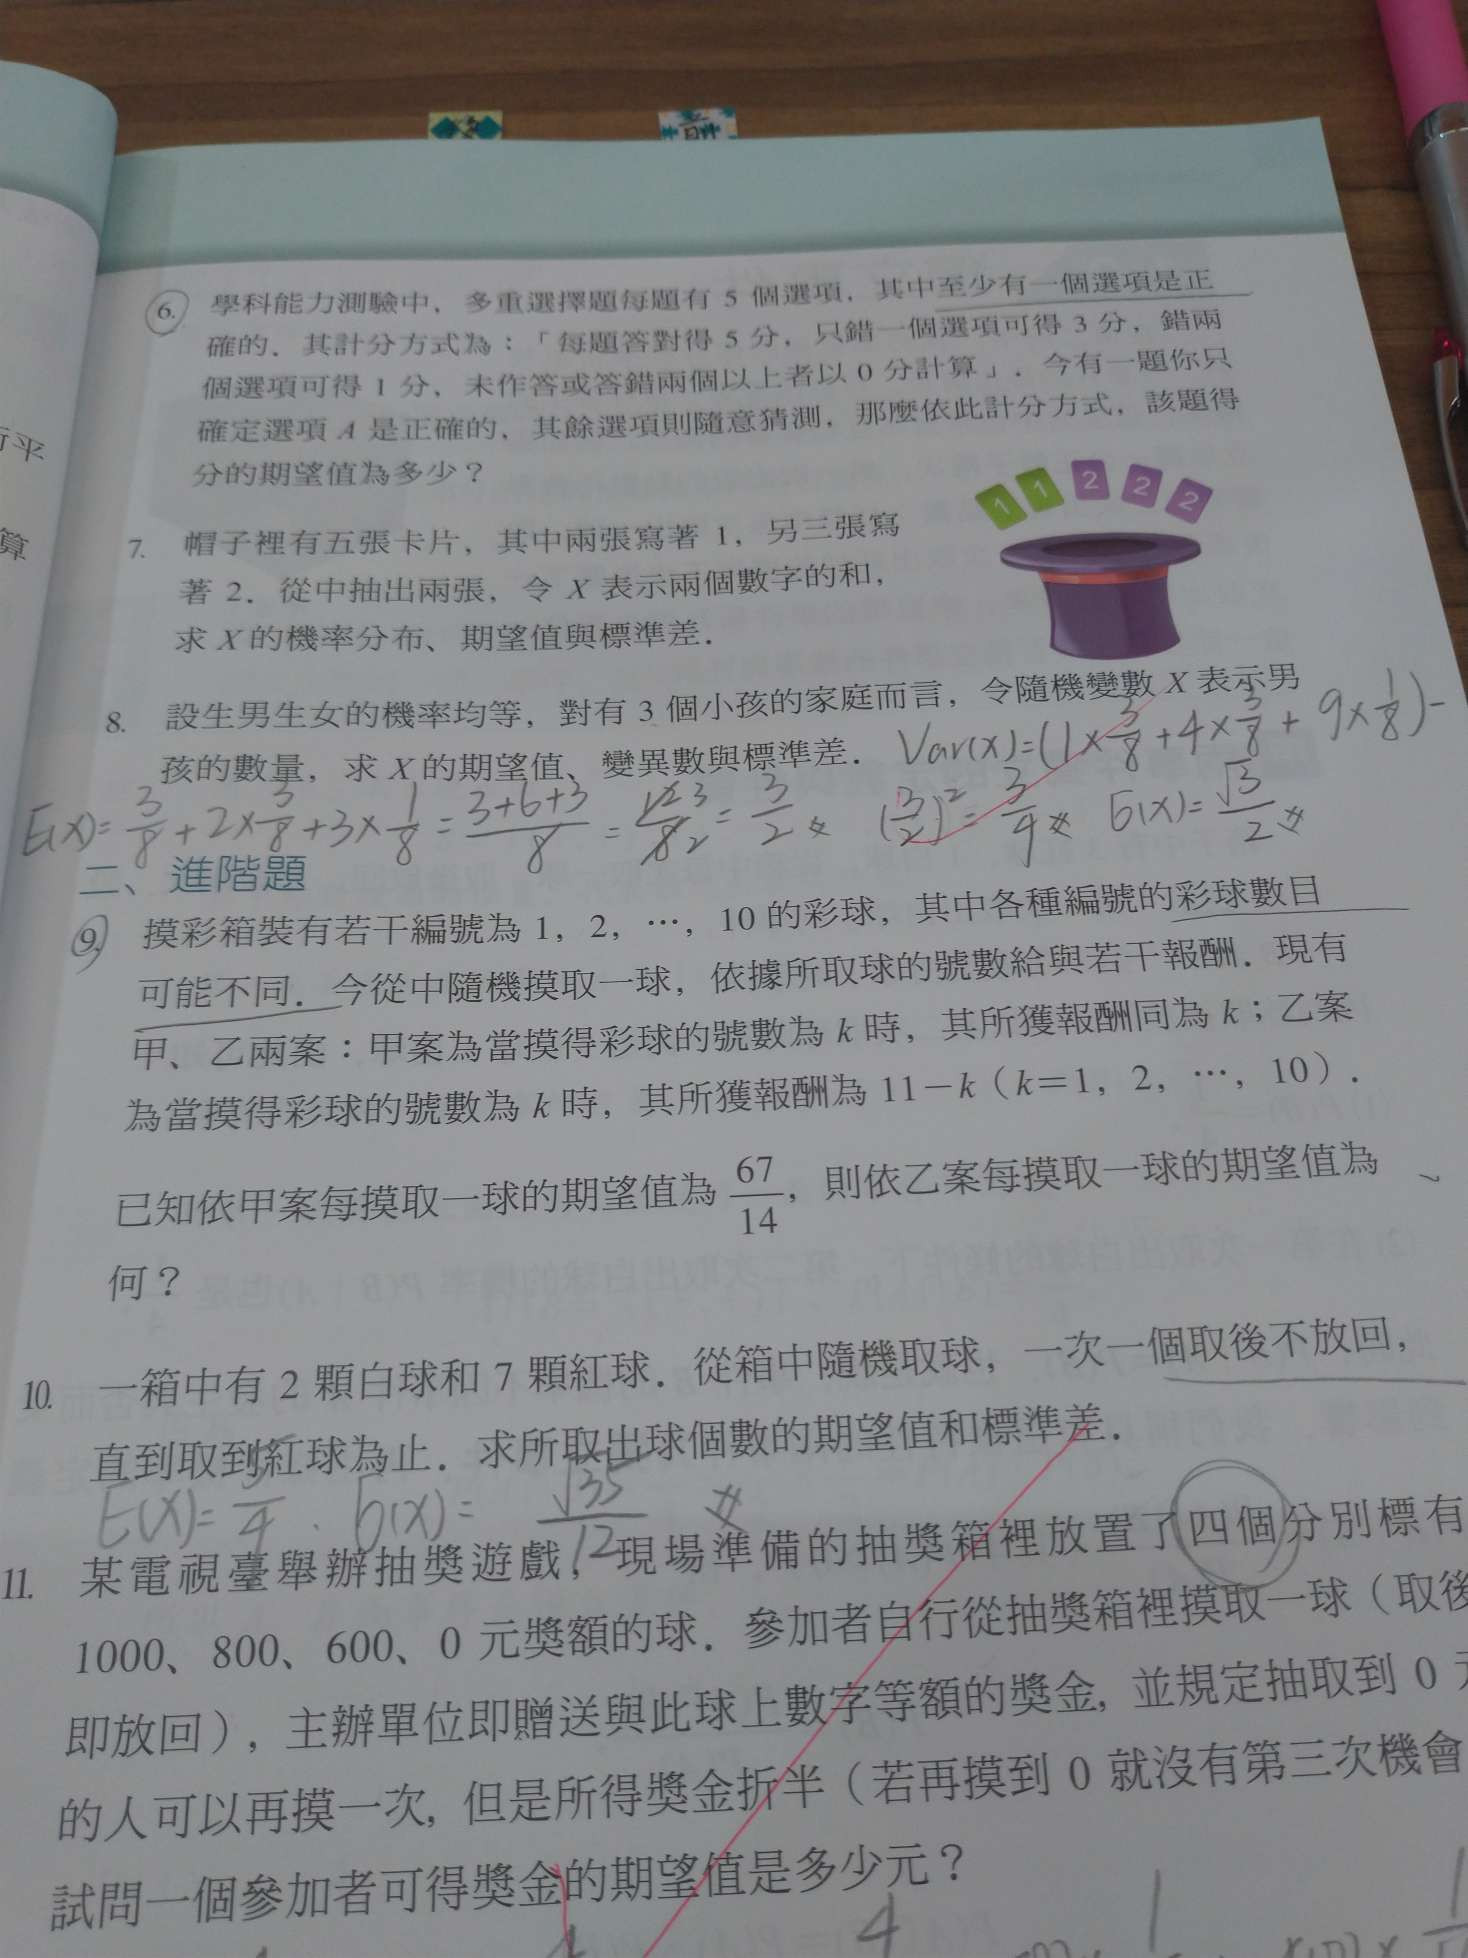 行平
算
6. 學科能力測驗中，多重選擇題每題有 5 個選項，其中至少有一個選項是正
確的．其計分方式為：「每題答對得 5 分，只錯一個選項可得 3 分，錯兩
個選項可得 1 分，未作答或答錯兩個以上者以 0 分計算」．今有一題你只
確定選項 A 是正確的，其餘選項則隨意猜測，那麼依此計分方式，該題得
分的期望值為多少？
1 1 2 2 2
7. 帽子裡有五張卡片，其中兩張寫著 1，另三張寫
著 2．從中抽出兩張，令 X 表示兩個數字的和，
求 X 的機率分布、期望值與標準差．
8. 設生男生女的機率均等，對有 3 個小孩的家庭而言，令隨機變數 X 表示男
孩的數量，求 X 的期望值、變異數與標準差． Var(X)=(1×3/8+4×3/8+9×1/8)-
E(X)=3/8+2×3/8+3×1/8=3+6+3/8=12/8=3/2 (3/2)²=3/4 σ(X)=√3/2
二、進階題
9. 摸彩箱裝有若干編號為 1，2，…，10 的彩球，其中各種編號的彩球數目
可能不同．今從中隨機摸取一球，依據所取球的號數給與若干報酬．現有
甲、乙兩案：甲案為當摸得彩球的號數為 k 時，其所獲報酬同為 k；乙案
為當摸得彩球的號數為 k 時，其所獲報酬為 11－k（k＝1，2，…，10）．
已知依甲案每摸取一球的期望值為 67/14，則依乙案每摸取一球的期望值為
何？
10. 一箱中有 2 顆白球和 7 顆紅球．從箱中隨機取球，一次一個取後不放回，
直到取到紅球為止．求所取出球個數的期望值和標準差．
E(X)=5/4 . σ(X)= √35/12
11. 某電視臺舉辦抽獎遊戲，現場準備的抽獎箱裡放置了四個分別標有
1000、800、600、0 元獎額的球．參加者自行從抽獎箱裡摸取一球（取後
即放回），主辦單位即贈送與此球上數字等額的獎金，並規定抽取到 0 元
的人可以再摸一次，但是所得獎金折半（若再摸到 0 就沒有第三次機會
試問一個參加者可得獎金的期望值是多少元？